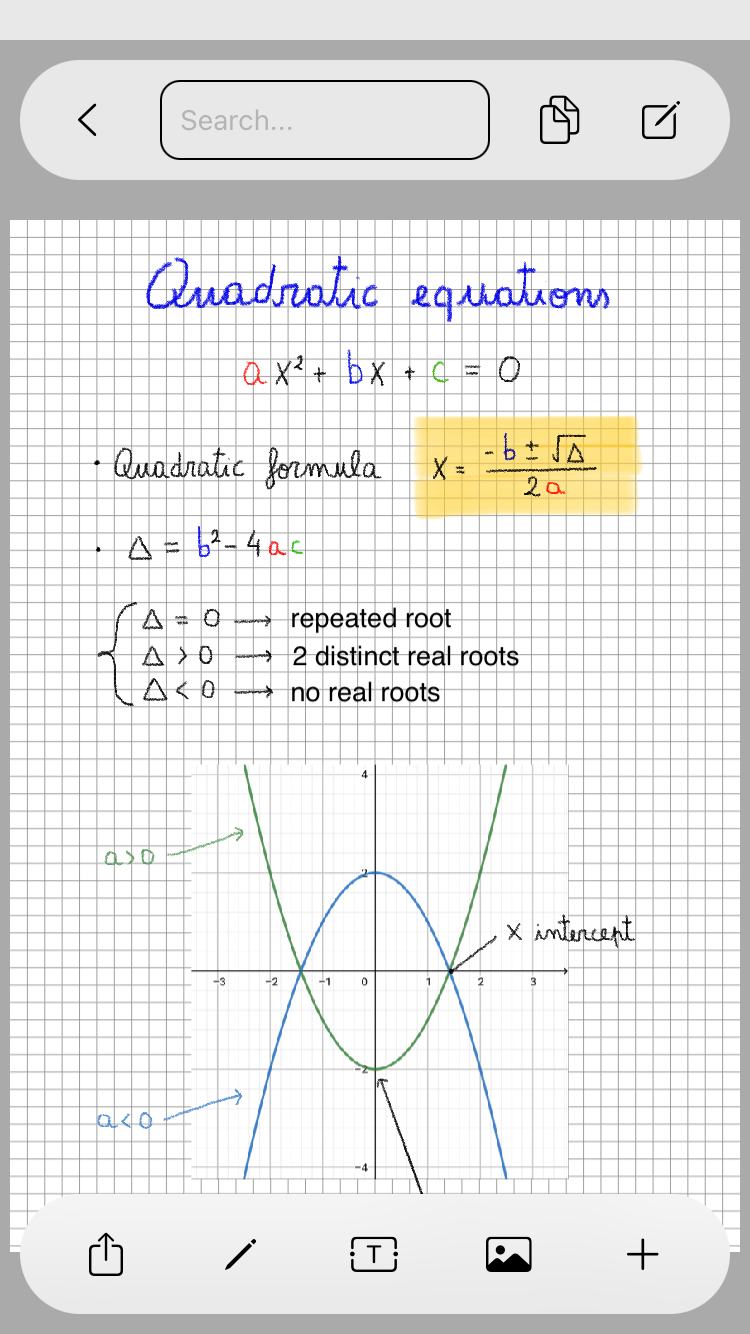 Search...
Quadratic equations
ax² + bx + c = 0
• Quadratic formula x = (-b ± √Δ) / 2a
• Δ = b² - 4ac
Δ = 0 → repeated root
Δ > 0 → 2 distinct real roots
Δ < 0 → no real roots
4
a>0
2
x intercept
-3 -2 -1 0 1 2 3
-2
a<0
-4
T